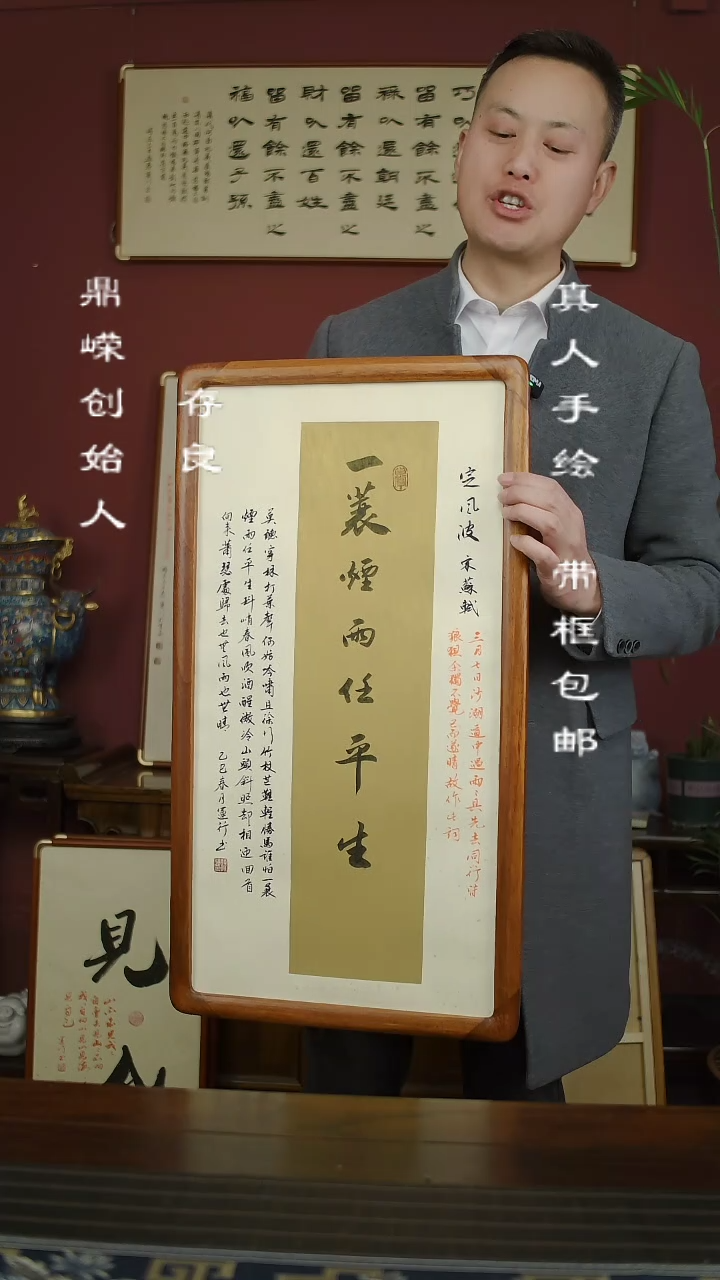 留有餘不盡之
祿以還朝廷
留有餘不盡之
財以還百姓
留有餘不盡之
福以還子孫
真人手绘
带框包邮
鼎嵘创始人
存良
定风波 宋蘇軾
三月七日沙湖道中遇雨雨具先去同行皆
狼狽余獨不覺已而遂晴故作此詞
一蓑煙雨任平生
莫聽穿林打葉聲何妨吟嘯且徐行竹杖芒鞋輕勝馬誰怕一蓑
煙雨任平生料峭春風吹酒醒微冷山頭斜照却相迎回首
向来蕭瑟處歸去也無風雨也無晴 乙巳春月
見